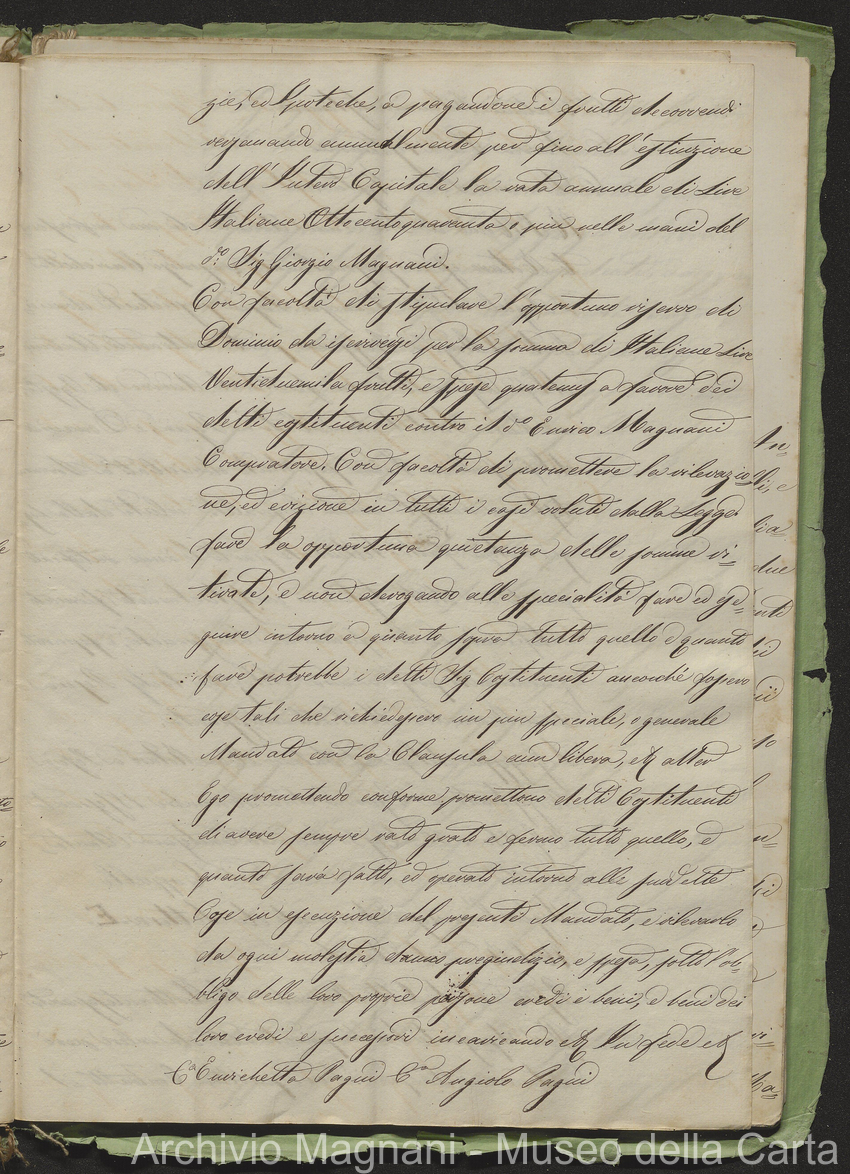 zie, ed Ipoteche, e pagandone i frutti decorrendi
versanando annualmente, per fino all'estinzione
dell'Intero Capitale la rata annuale di Lire
Italiane Ottocentoquaranta, e più nelle mani del
do. Sig Giorgio Magnani.
Con facoltà di stipulare l'opportuno riservo di
Dominio da iscriversi per la somma di Italiane Lire
Ventiduemila frutti, e spese quatenus a favore dei
detti costituenti contro il do Enrico Magnani
Compratore. Con facoltà di promettere la rilevazio=
ne, ed evizione in tutti i casi voluti dalla Legge
fare la opportuna quietanza delle somme ri=
tirate, e non derogando alle specialità fare ed ese=
guire intorno a quanto sopra tutto quello e quanto
fare potrebbe i detti Sig Costituenti ancorché fossero
cose tali che richiedessero un più speciale, o generale
Mandato con la Clausula cum libera, & alter
Ego promettendo conforme promettono detti Costituenti
di avere sempre rato grato e fermo tutto quello, e
quanto sarà fatto, ed operato intorno alle sud.ette
Cose in esecuzione del presente Mandato, e rilevarlo
da ogni molestia danno pregiudizio, e spesa, sotto l'ob=
bligo delle loro proprie persone eredi e beni, e beni dei
loro eredi e successori incaricando & In fede &
Ca Enrichetta Pagni Co Angiolo Pagni
Archivio Magnani - Museo della Carta